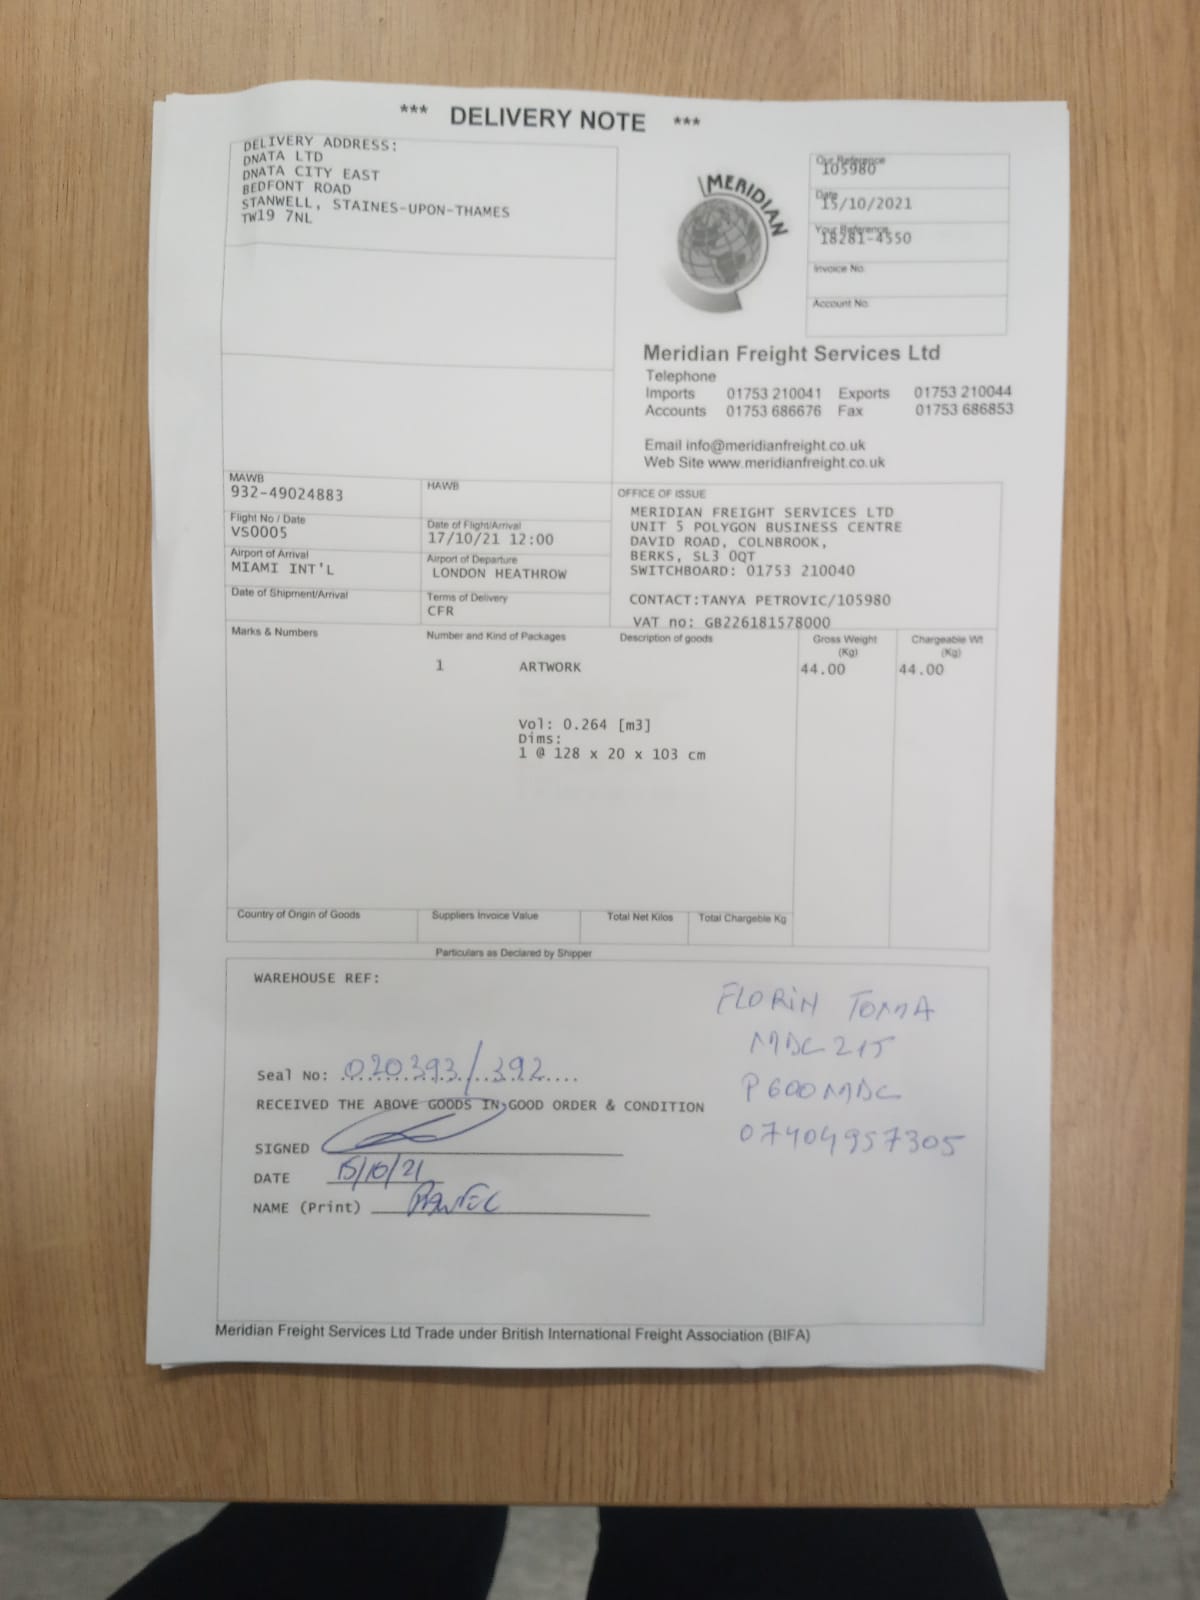 *** DELIVERY NOTE ***
DELIVERY ADDRESS:
DNATA LTD
DNATA CITY EAST
BEDFONT ROAD
STANWELL, STAINES-UPON-THAMES
TW19 7NL
MERIDIAN
Our Reference
105980
Date
15/10/2021
Your Reference
18281-4550
Invoice No.
Account No.
Meridian Freight Services Ltd
Telephone
Imports 01753 210041 Exports 01753 210044
Accounts 01753 686676 Fax 01753 686853
Email info@meridianfreight.co.uk
Web Site www.meridianfreight.co.uk
MAWB
932-49024883
HAWB
Flight No / Date
VS0005
Date of Flight/Arrival
17/10/21 12:00
Airport of Arrival
MIAMI INT'L
Airport of Departure
LONDON HEATHROW
Date of Shipment/Arrival
Terms of Delivery
CFR
OFFICE OF ISSUE
MERIDIAN FREIGHT SERVICES LTD
UNIT 5 POLYGON BUSINESS CENTRE
DAVID ROAD, COLNBROOK,
BERKS, SL3 0QT
SWITCHBOARD: 01753 210040
CONTACT:TANYA PETROVIC/105980
VAT no: GB226181578000
Marks & Numbers Number and Kind of Packages Description of goods Gross Weight (Kg) Chargeable Wt (Kg)
1 ARTWORK 44.00 44.00
Vol: 0.264 [m3]
Dims:
1 @ 128 x 20 x 103 cm
Country of Origin of Goods Suppliers Invoice Value Total Net Kilos Total Chargeble Kg
Particulars as Declared by Shipper
WAREHOUSE REF:
FLORIN TOMA
MDC 215
P600MDC
07404957305
Seal No: 020393/392
RECEIVED THE ABOVE GOODS IN GOOD ORDER & CONDITION
SIGNED
DATE 15/10/21
NAME (Print)
Meridian Freight Services Ltd Trade under British International Freight Association (BIFA)